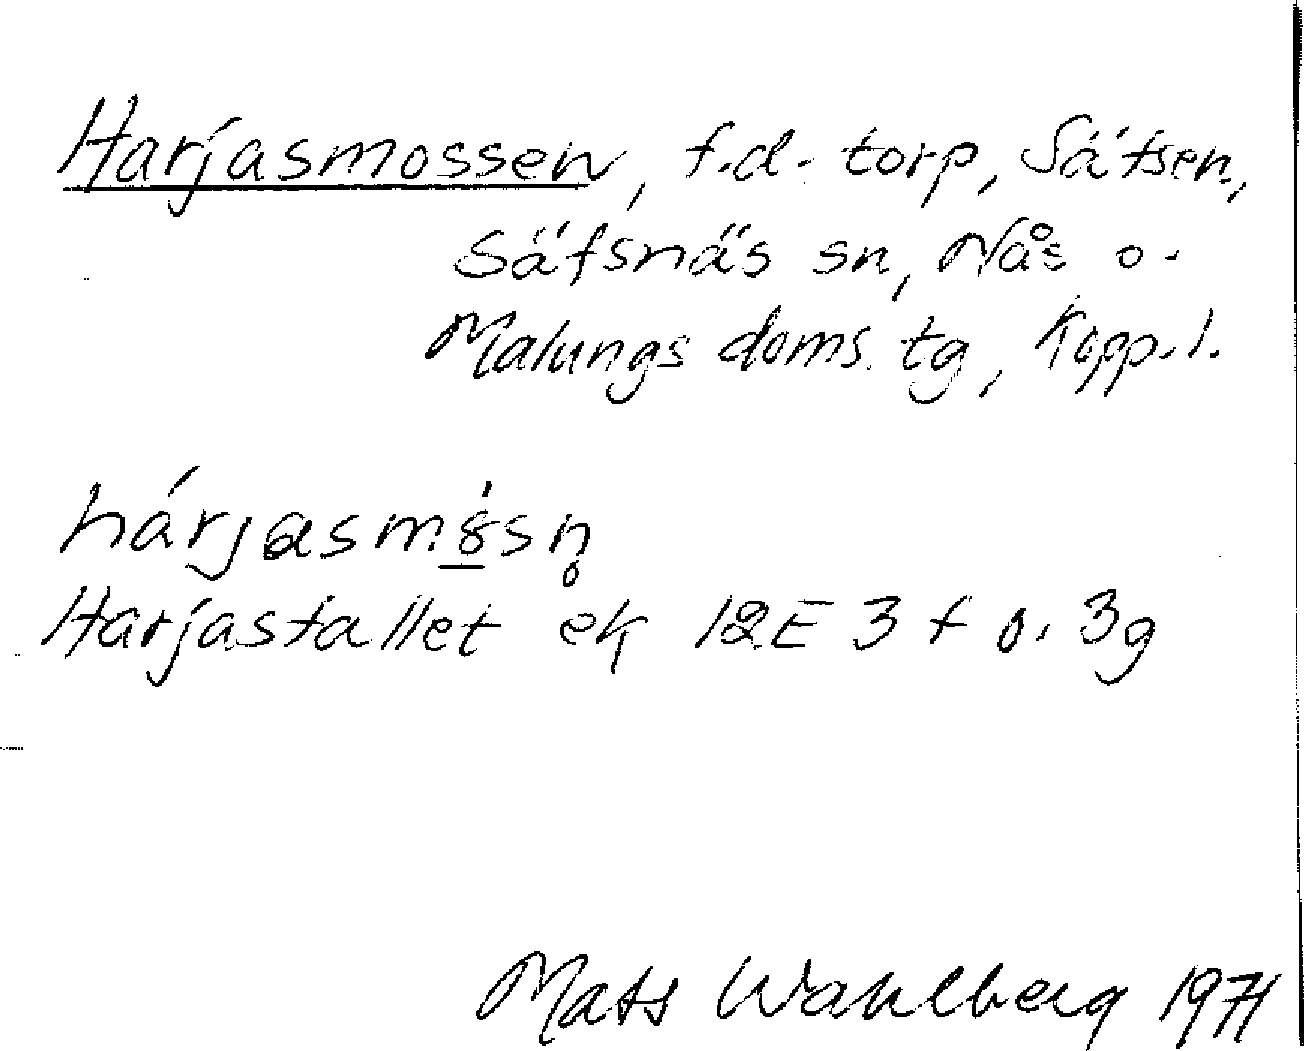 Harjasmossen, f.d. torp, Säfsen,
Säfsnäs sn, Nås o.
Malungs doms. tg, Kopp. l.
hárjasm8̲́sn̥
Harjastallet ek 12E 3f o. 3g
Mats Wahlberg 1971